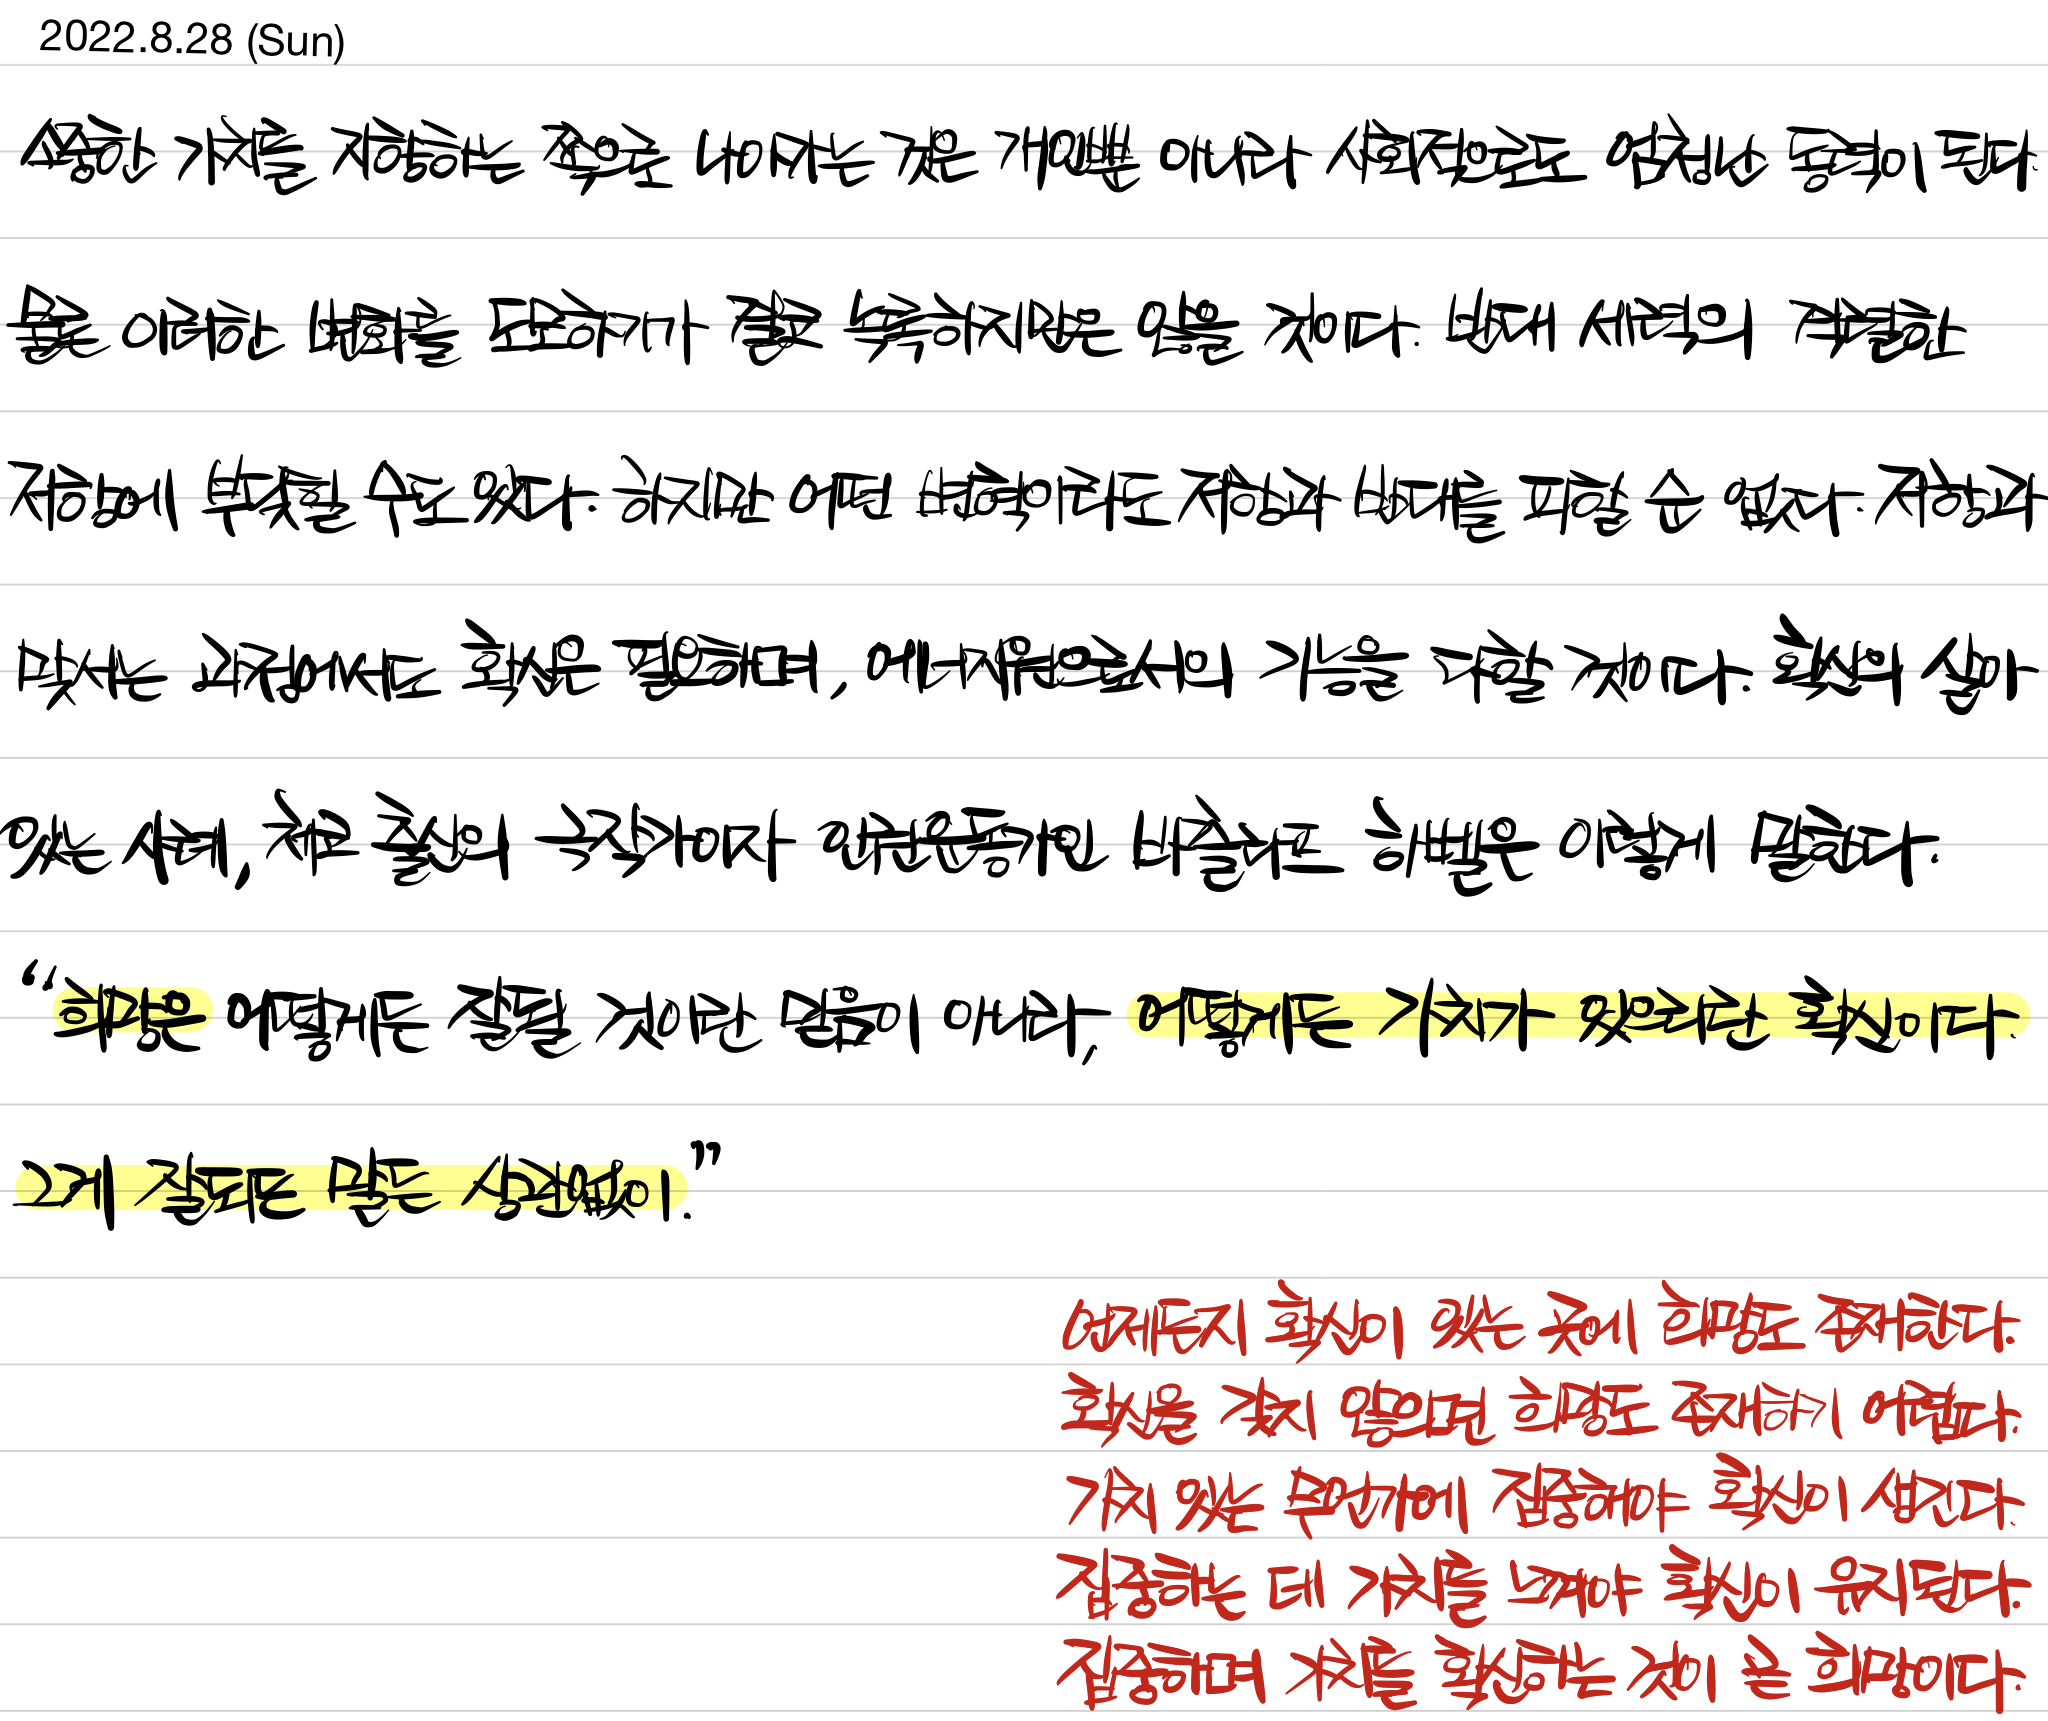 2022.8.28 (Sun)
소중한 가치를 지향하는 쪽으로 나아가는 것은 개인뿐 아니라 사회적으로도 엄청난 동력이 된다.
물론 이러한 변화를 도모하기가 결코 녹록하지만은 않을 것이다. 반대 세력의 격렬한
저항에 부딪힐 수도 있다. 하지만 어떤 변혁이라도 저항과 반대를 피할 순 없다. 저항과
맞서는 과정에서도 확신은 필요하며, 에너지원으로서의 기능을 다할 것이다. 확신의 살아
있는 사례, 체코 출신의 극작가이자 인권운동가인 바츨라프 하벨은 이렇게 말한다.
“희망은 어떻게든 잘될 것이란 믿음이 아니라, 어떻게든 가치가 있으리란 확신이다.
그게 잘되든 말든 상관없이.”
언제든지 확신이 있는 곳에 희망도 존재한다.
확신을 갖지 않으면 희망도 존재하기 어렵다.
가치 있는 무언가에 집중해야 확신이 생긴다.
집중하는 데 가치를 느껴야 확신이 유지된다.
집중하며 가치를 확신하는 것이 곧 희망이다.